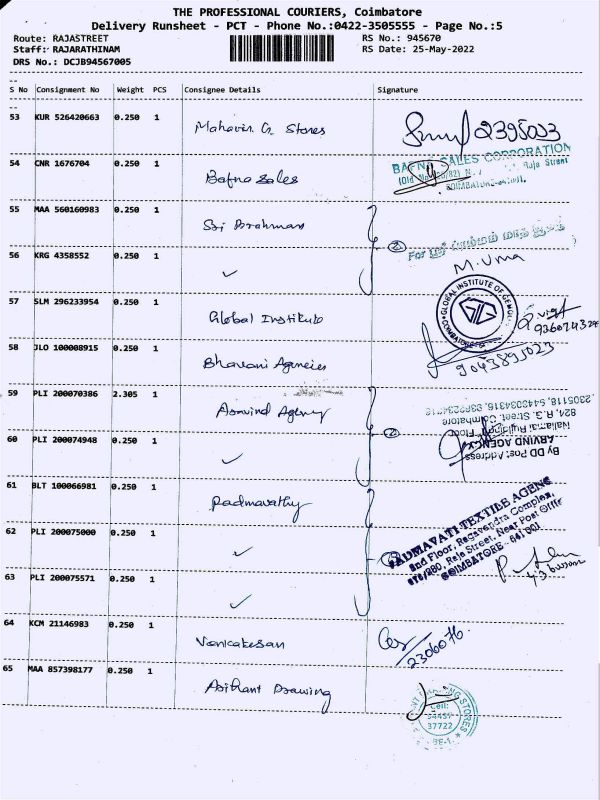 THE PROFESSIONAL COURIERS, Coimbatore
Delivery Runsheet - PCT - Phone No.:0422-3505555 - Page No.:5
Route: RAJASTREET RS No.: 945670
Staff: RAJARATHINAM RS Date: 25-May-2022
DRS No.: DCJB94567005
S No Consignment No Weight PCS Consignee Details Signature
53 KUR 526420663 0.250 1 Mahavir G Stores 2395023
54 CNR 1676704 0.250 1 Bafna Sales
BAFNA SALES CORPORATION
Raja Street
COIMBATORE
55 MAA 560160983 0.250 1 Sri Brahman
56 KRG 4358552 0.250 1 ✓ ②
M. Uma
57 SLM 296233954 0.250 1 Global Institute
GLOBAL INSTITUTE OF GEMOL
COIMBATORE
58 JLO 100008915 0.250 1 Bhavani Agencies 9043895023
59 PLI 200070386 2.305 1 Aravind Agency
60 PLI 200074948 0.250 1 ✓ ②
By DD Post Address
ARVIND AGENCY
824, R.G. Street, Coimbatore
61 BLT 100066981 0.250 1 Padmavathy
62 PLI 200075000 0.250 1 ✓
63 PLI 200075571 0.250 1 ✓
PADMAVATI TEXTILE AGENC
2nd Floor, Ragavendra Complex,
Raj Street, Near Post Offir
COIMBATORE - 641 001
64 KCM 21146983 0.250 1 Venkatesan 2306076
65 MAA 857398177 0.250 1 Arihant Drawing
STORES
Cell:
94437
37722